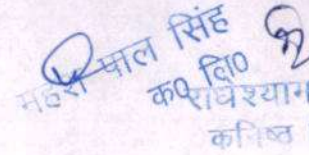 महेश पाल सिंह
क० लि०
राधेश्याम
कनिष्ठ